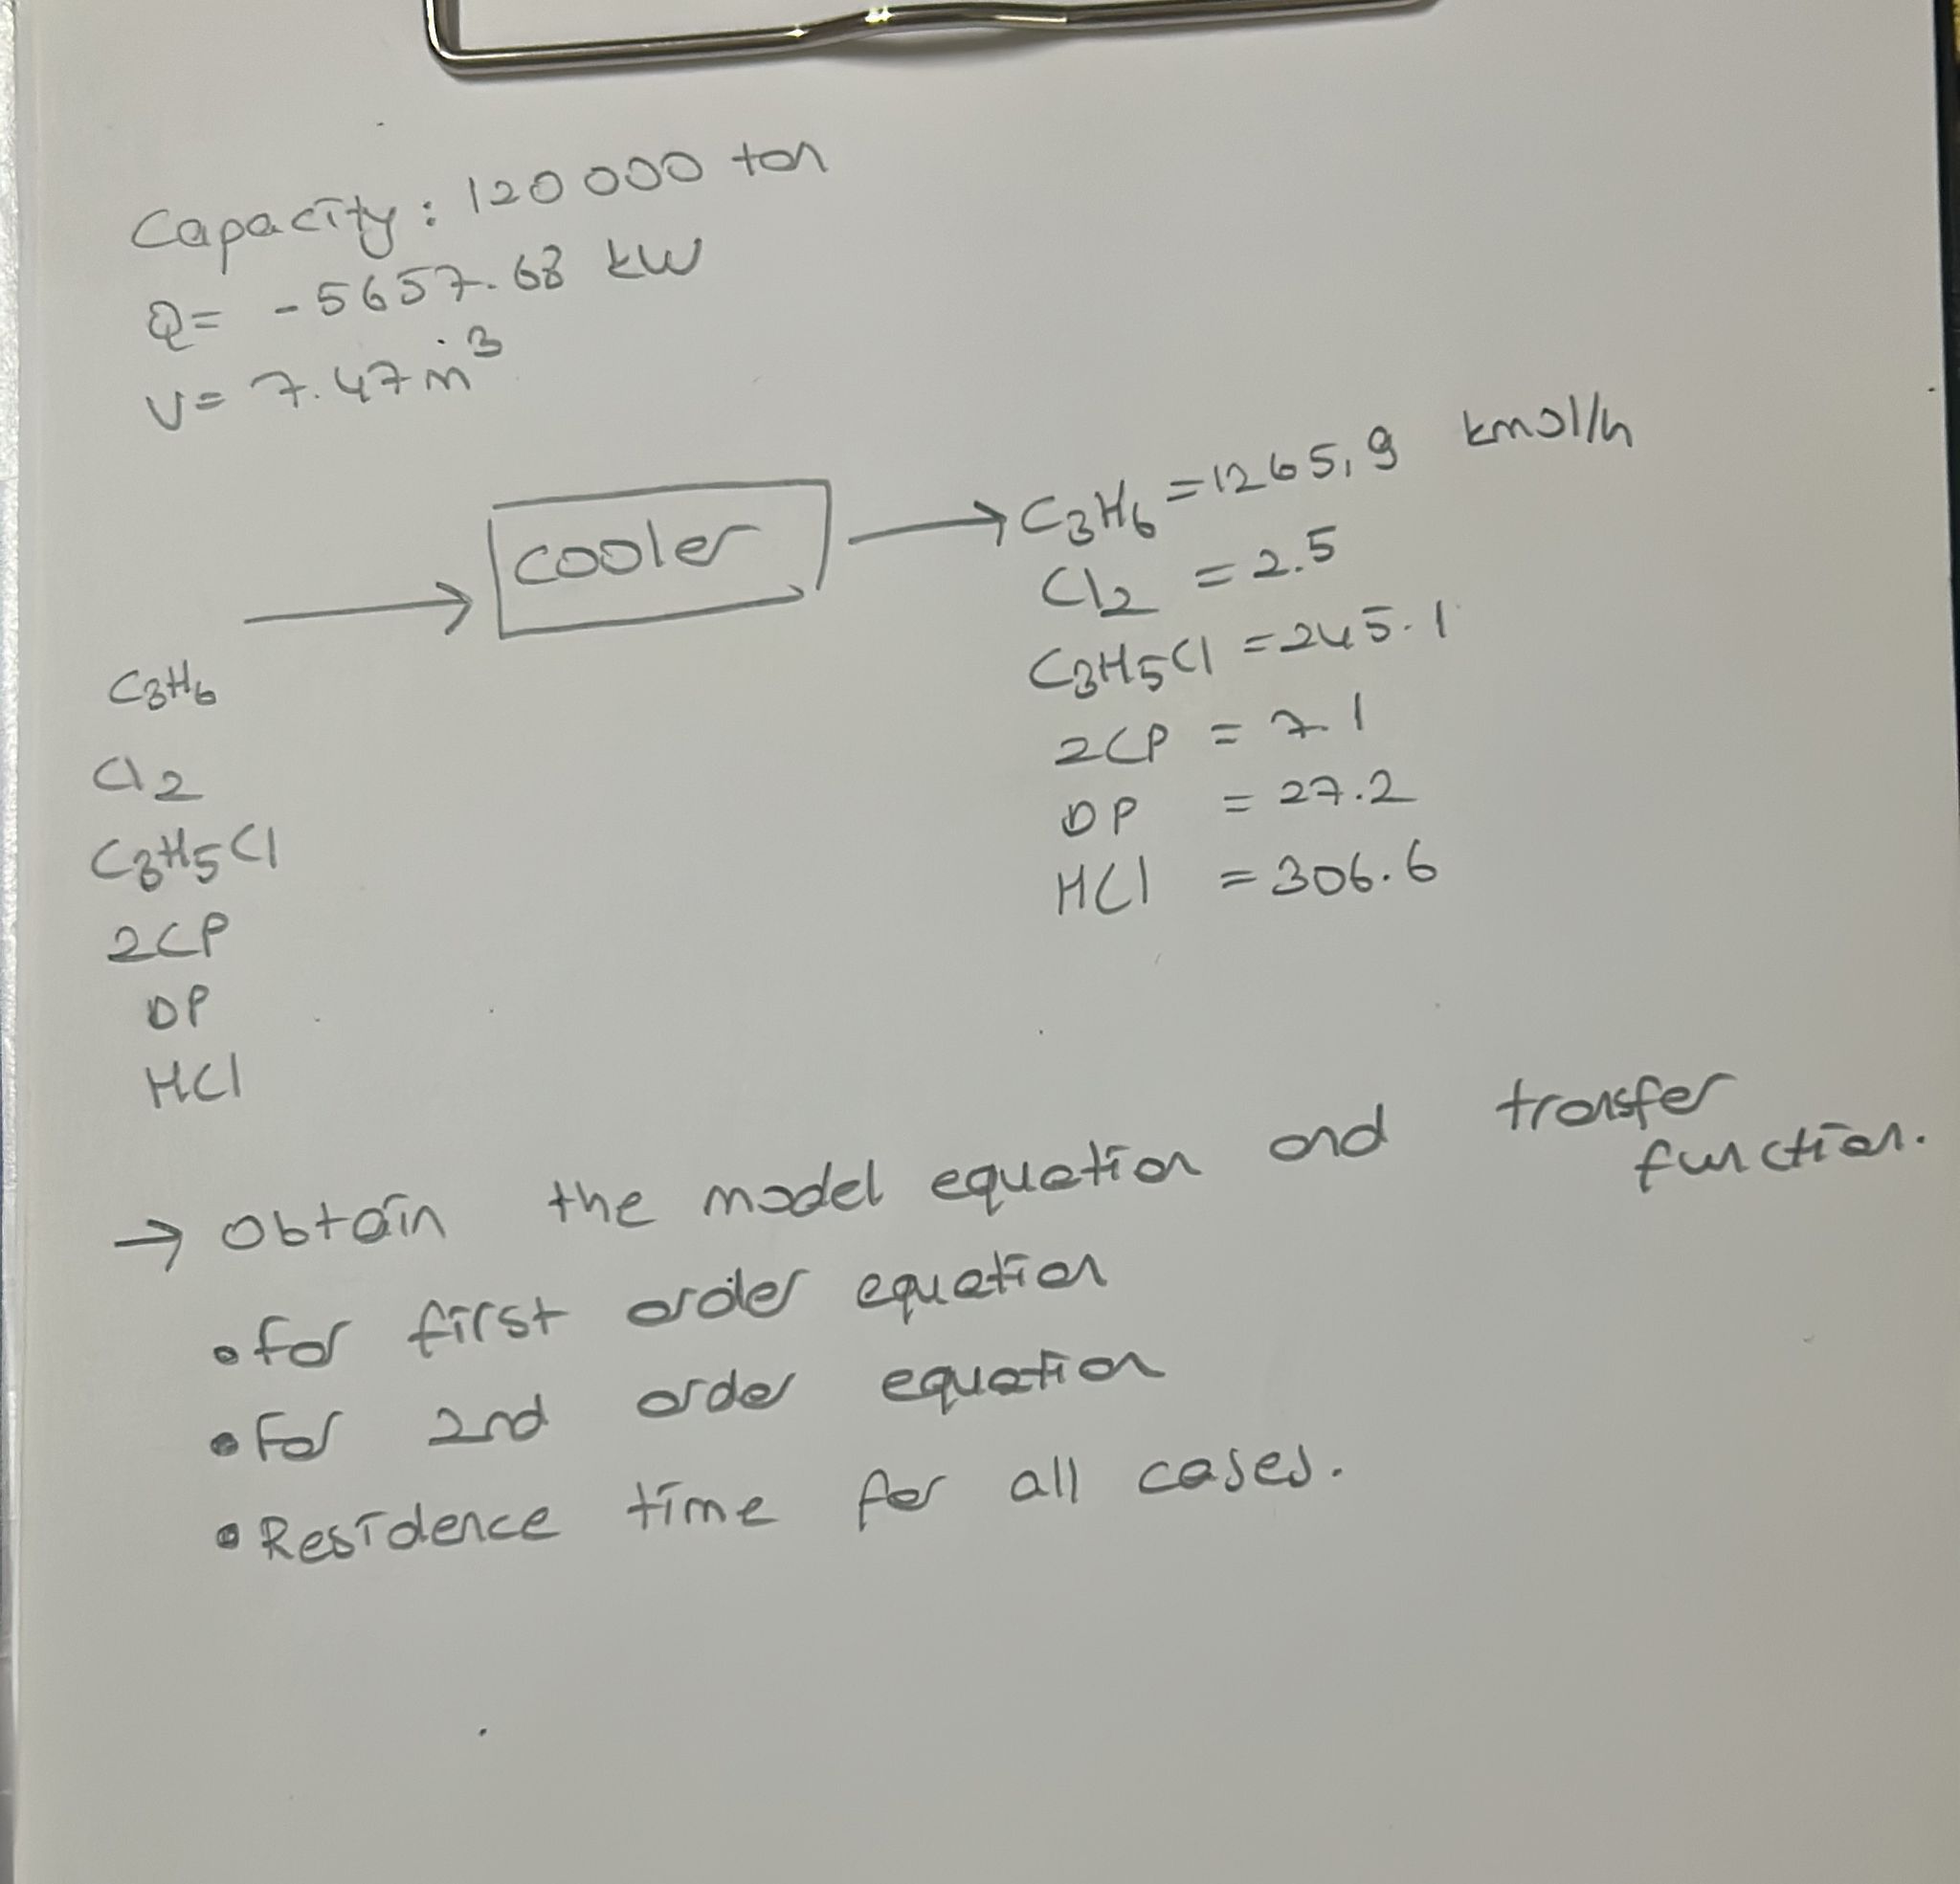 Capacity: 120 000 ton
Q= -5657.68 kW
V= 7.47 m³
cooler
C3H6 = 1265,9 kmol/h
Cl2 = 2.5
C3H5Cl = 245.1
2CP = 7.1
DP = 27.2
HCl = 306.6
C3H6
Cl2
C3H5Cl
2CP
DP
HCl
→ Obtain the model equation and transfer function.
• for first order equation
• For 2nd order equation
• Residence time for all cases.